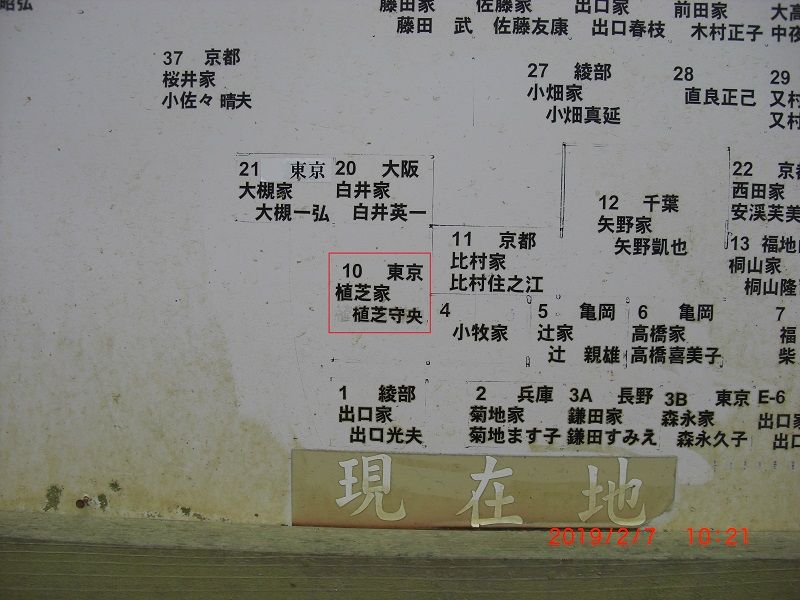 昭弘
藤田家
藤田 武
佐藤家
佐藤友康
出口家
出口春枝
前田家
木村正子
37 京都
桜井家
小佐々 晴夫
27 綾部
小畑家
小畑真延
28
直良正己
29
又村
又村
21 東京
大槻家
大槻一弘
20 大阪
白井家
白井英一
12 千葉
矢野家
矢野凱也
22 京都
西田家
安溪芙美
10 東京
植芝家
植芝守央
11 京都
比村家
比村住之江
13 福地
桐山家
桐山隆
4
小牧家
5 亀岡
辻家
辻 親雄
6 亀岡
高橋家
高橋喜美子
7
福
柴
1 綾部
出口家
出口光夫
2 兵庫
菊地家
菊地ます子
3A 長野
鎌田家
鎌田すみえ
3B 東京
森永家
森永久子
E-6
出口家
出口
現在地
2019/2/7 10:21